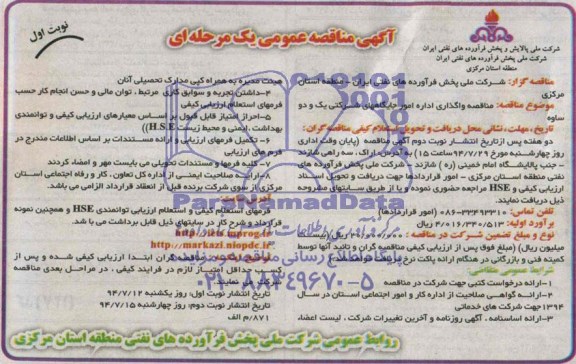 شرکت ملی پالایش و پخش فرآورده های نفتی ایران
شرکت ملی پخش فرآورده های نفتی ایران
منطقه استان مرکزی
آگهی مناقصه عمومی یک مرحله ای
نوبت اول
مناقصه گزار: شرکت ملی پخش فرآورده های نفتی ایران - منطقه استان مرکزی
موضوع مناقصه: مناقصه واگذاری اداره امور جایگاههای شرکتی یک و دو ساوه
تاریخ، مهلت، نشانی محل دریافت و تحویل استعلام کیفی مناقصه گران:
دو هفته پس از تاریخ انتشار نوبت دوم آگهی مناقصه (پایان وقت اداری
روز چهارشنبه مورخ ۹۴/۷/۲۹ ساعت ۱۵) به آدرس: اراک، سه راهی شازند
- جنب پالایشگاه امام خمینی (ره) شازند - شرکت ملی پخش فرآورده های
نفتی منطقه استان مرکزی - امور قراردادها جهت دریافت و تحویل اسناد
ارزیابی کیفی و HSE مراجعه حضوری نموده و یا از طریق سایتهای مشروحه
ذیل دریافت نمایند.
تلفن تماس: ۳۳۴۹۳۳۱۰-۰۸۶ (امور قراردادها)
برآورد اولیه: ۴/۰۱۶/۳۴۰/۵۱۳ ریال
نوع و مبلغ تضمین شرکت در مناقصه:
میلیون ریال) (مبلغ فوق پس از ارزیابی کیفی مناقصه گران و تائید آنها توسط
کمیته فنی و بازرگانی در هنگام ارائه پاکت نرخ
شرایط عمومی متقاضی:
۱-ارائه درخواست کتبی جهت شرکت در مناقصه
۲-ارائه گواهی صلاحیت از اداره کار و امور اجتماعی استان در سال
۱۳۹۴ جهت شرکت های خدماتی
۳-ارائه اساسنامه ، آگهی روزنامه و آخرین تغییرات شرکت ، لیست اعضاء
هیئت مدیره به همراه کپی مدارک تحصیلی آنان
۴-داشتن تجربه و سوابق کاری مرتبط ، توان مالی و حسن انجام کار حسب
فرمهای استعلام ارزیابی کیفی
۵-احراز امتیاز قابل قبول بر اساس معیارهای ارزیابی کیفی و توانمندی
بهداشت ،ایمنی و محیط زیست (H.S.E))
۶- تکمیل فرمهای ارزیابی و ارائه مستندات بر اساس اطلاعات مندرج در
فرم های ارزیابی
۷-کلیه فرمها و مستندات تحویلی می بایست مهر و امضاء گردند
۸-ارائه صلاحیت ایمنی از اداره کل تعاون ، کار و رفاه اجتماعی استان
مرکزی از سوی شرکت برنده قبل از انعقاد قرارداد الزامی می باشد.
فرمهای استعلام کیفی و استعلام ارزیابی توانمندی HSE و همچنین نمونه
قرارداد و شرح کار در سایتهای ذیل قابل برداشت می باشد.
http://iets.mporg.ir
http://markazi.niopdc.ir
ابتدا ارزیابی کیفی شده و پس از
کسب حداقل امتیاز لازم در فرآیند کیفی ، در مراحل بعدی مناقصه
تاریخ انتشار نوبت اول: روز یکشنبه ۹۴/۷/۱۲
تاریخ انتشار نوبت دوم: روز چهارشنبه ۹۴/۷/۱۵
۸۷۱/م الف
روابط عمومی شرکت ملی پخش فرآورده های نفتی منطقه استان مرکزی
ParsNamadData
پایگاه اطلاع رسانی مناقصه و مزایده
۰۲۱-۸۸۳۴۹۶۷۰-۵